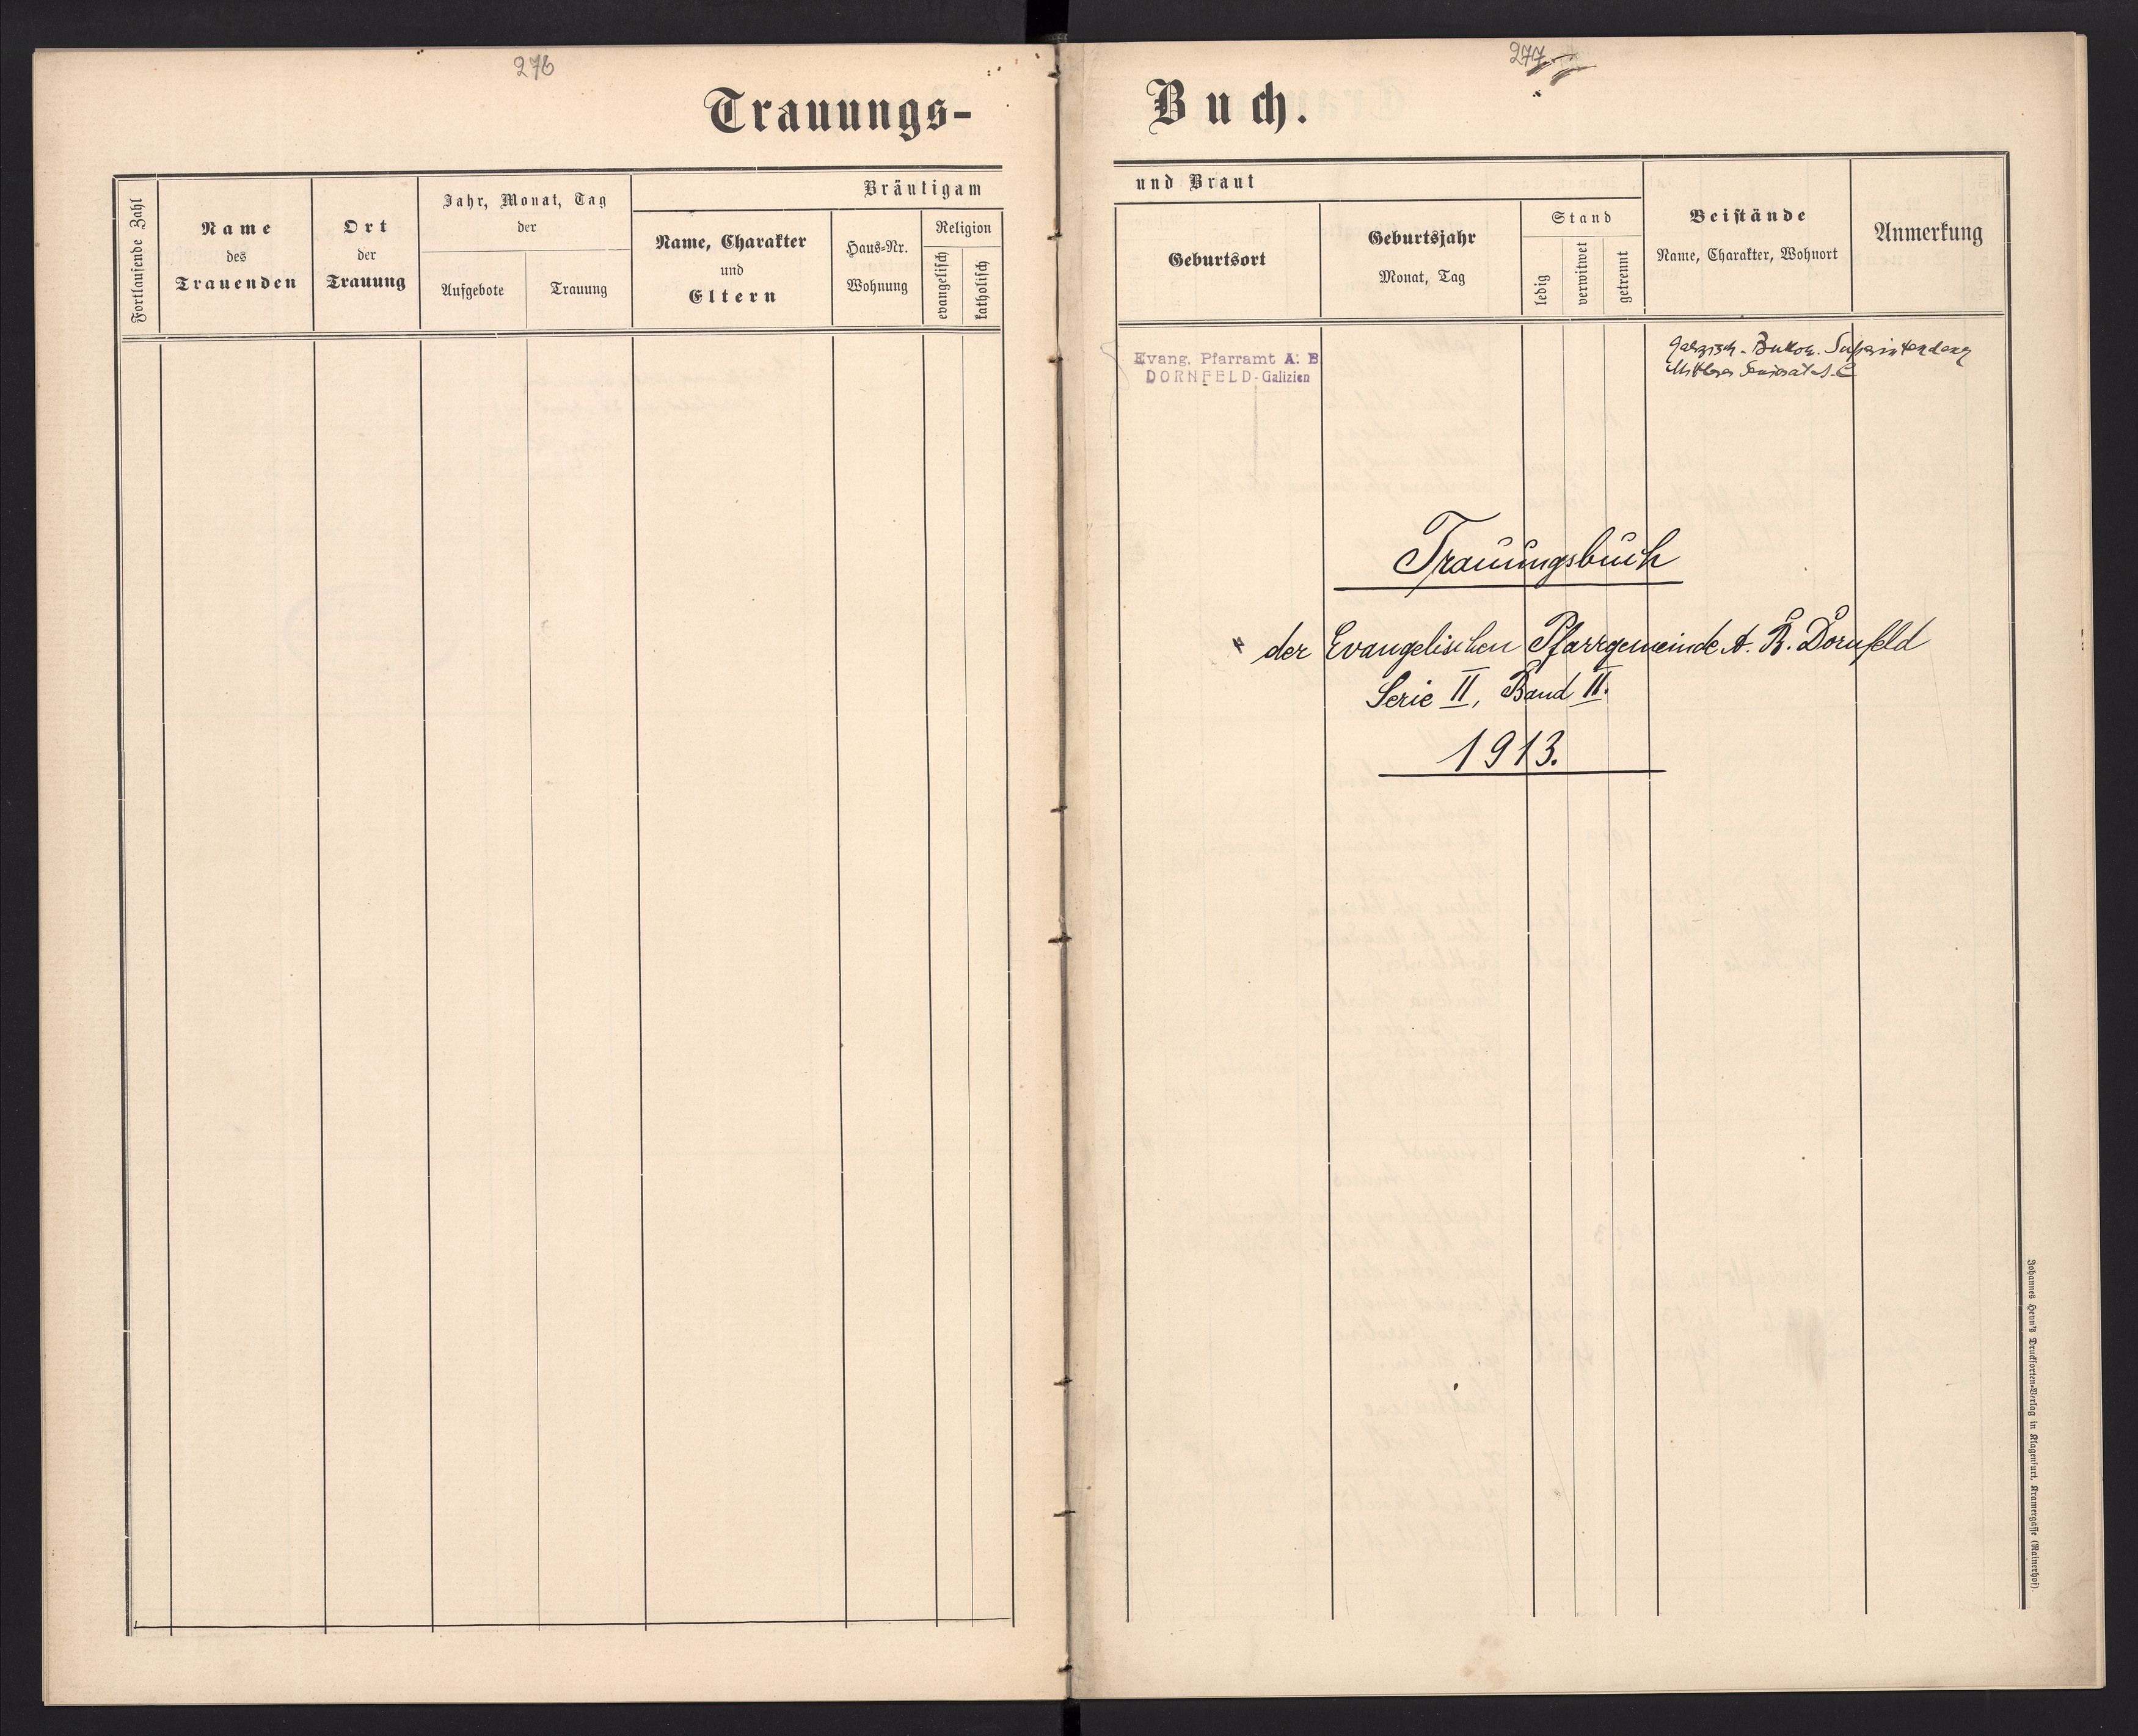 276
Trauungs-
Fortlaufende Zahl
Name
des
Trauenden
Ort
der
Trauung
Jahr, Monat, Tag
der
Aufgebote
Trauung
Bräutigam
Name, Charakter
und
Eltern
Haus-Nr.
Wohnung
Religion
evangelisch
katholisch
277
Buch.
und Braut
Geburtsort
Geburtsjahr
Monat, Tag
Stand
ledig
verwitwet
getrennt
Beistände
Name, Charakter, Wohnort
Anmerkung
Evang. Pfarramt A. B
DORNFELD-Galizien
Galizisch-Bukow. Superintendenz
Mittleres Seniorat A. C
Trauungsbuch
der Evangelischen Pfarrgemeinde A. B. Dornfeld
Serie II, Band II.
1913.
Johannes Heyn's Drucksorten-Verlag in Klagenfurt, Kramergasse (Rainerhof).